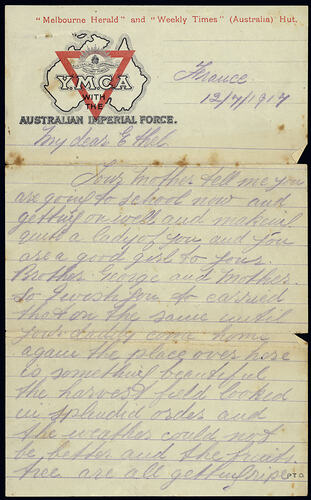 "Melbourne Herald" and "Weekly Times" (Australia) Hut.
Y.M.C.A
WITH
THE
AUSTRALIAN IMPERIAL FORCE.
France
12/7/1917
My dear Ethel
Your Mother tell me you
are going to school now and
getting on well and making
quite a lady of you and you
are a good girl to your
Brother George and Mother.
So I wish you to carried
that on the same until
your daddy come home
again the place over here
is something beautiful
the harvest field looked
in splendid order and
the weather could not
be better and the fruits
tree are all getting ripe
PTO